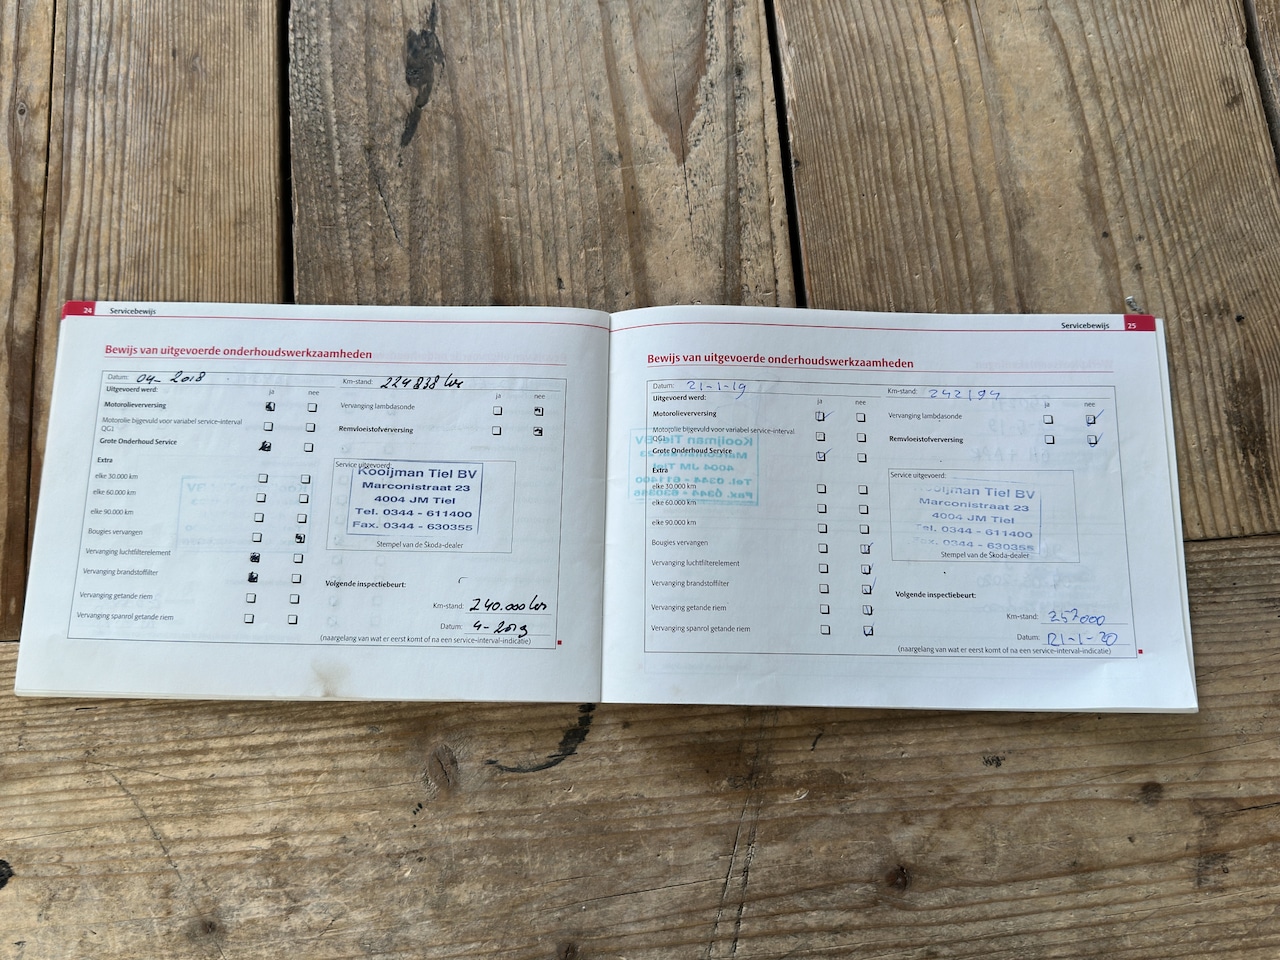 24 Servicebewijs
Bewijs van uitgevoerde onderhoudswerkzaamheden
Datum: 04-2018 Km-stand: 224838 km
Uitgevoerd werd: ja nee ja nee
Motorolieverversing
Vervanging lambdasonde
Motorolie bijgevuld voor variabel service-interval
QG1
Remvloeistofverversing
Grote Onderhoud Service
Extra
Service uitgevoerd:
elke 30.000 km
elke 60.000 km
elke 90.000 km
Bougies vervangen
Vervanging luchtfilterelement
Vervanging brandstoffilter
Vervanging getande riem
Vervanging spanrol getande riem
Kooijman Tiel BV
Marconistraat 23
4004 JM Tiel
Tel. 0344 - 611400
Fax. 0344 - 630355
Stempel van de Škoda-dealer
Volgende inspectiebeurt:
Km-stand: 240.000 km
Datum: 4-2019
(naargelang van wat er eerst komt of na een service-interval-indicatie)
Servicebewijs 25
Bewijs van uitgevoerde onderhoudswerkzaamheden
Datum: 21-1-19 Km-stand: 242194
Uitgevoerd werd: ja nee ja nee
Motorolieverversing
Vervanging lambdasonde
Motorolie bijgevuld voor variabel service-interval
QG1
Remvloeistofverversing
Grote Onderhoud Service
Extra
Service uitgevoerd:
elke 30.000 km
elke 60.000 km
elke 90.000 km
Bougies vervangen
Vervanging luchtfilterelement
Vervanging brandstoffilter
Vervanging getande riem
Vervanging spanrol getande riem
Kooijman Tiel BV
Marconistraat 23
4004 JM Tiel
Tel. 0344 - 611400
Fax. 0344 - 630355
Stempel van de Škoda-dealer
Volgende inspectiebeurt:
Km-stand: 257000
Datum: 21-1-20
(naargelang van wat er eerst komt of na een service-interval-indicatie)